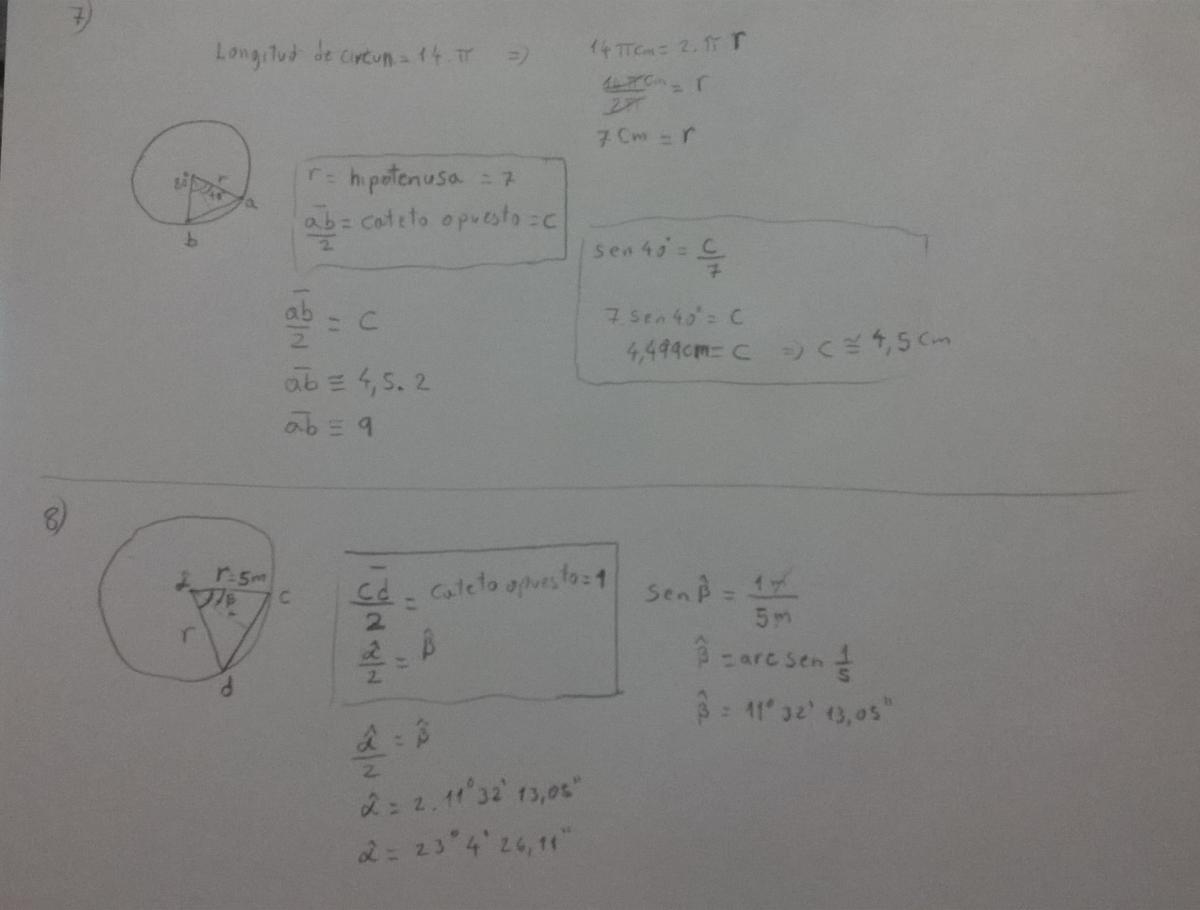 7)
Longitud de circun = 14.π ⇒
14πcm = 2.π r
14πcm/2π = r
7cm = r
80°
r
40°
a
b
r = hipotenusa = 7
ab/2 = cateto opuesto = c
sen 40° = c/7
7 sen 40° = c
4,499cm = c ⇒ c ≅ 4,5cm
ab/2 = c
ab ≅ 4,5.2
ab ≅ 9
8)
r=5m
α̂
β
c
r
d
cd/2 = cateto opuesto = 1
α̂/2 = β̂
sen β̂ = 1m/5m
β̂ = arc sen 1/5
β̂ = 11° 32' 13,05"
α̂/2 = β̂
α̂ = 2.11° 32' 13,05"
α̂ = 23° 4' 26,11"